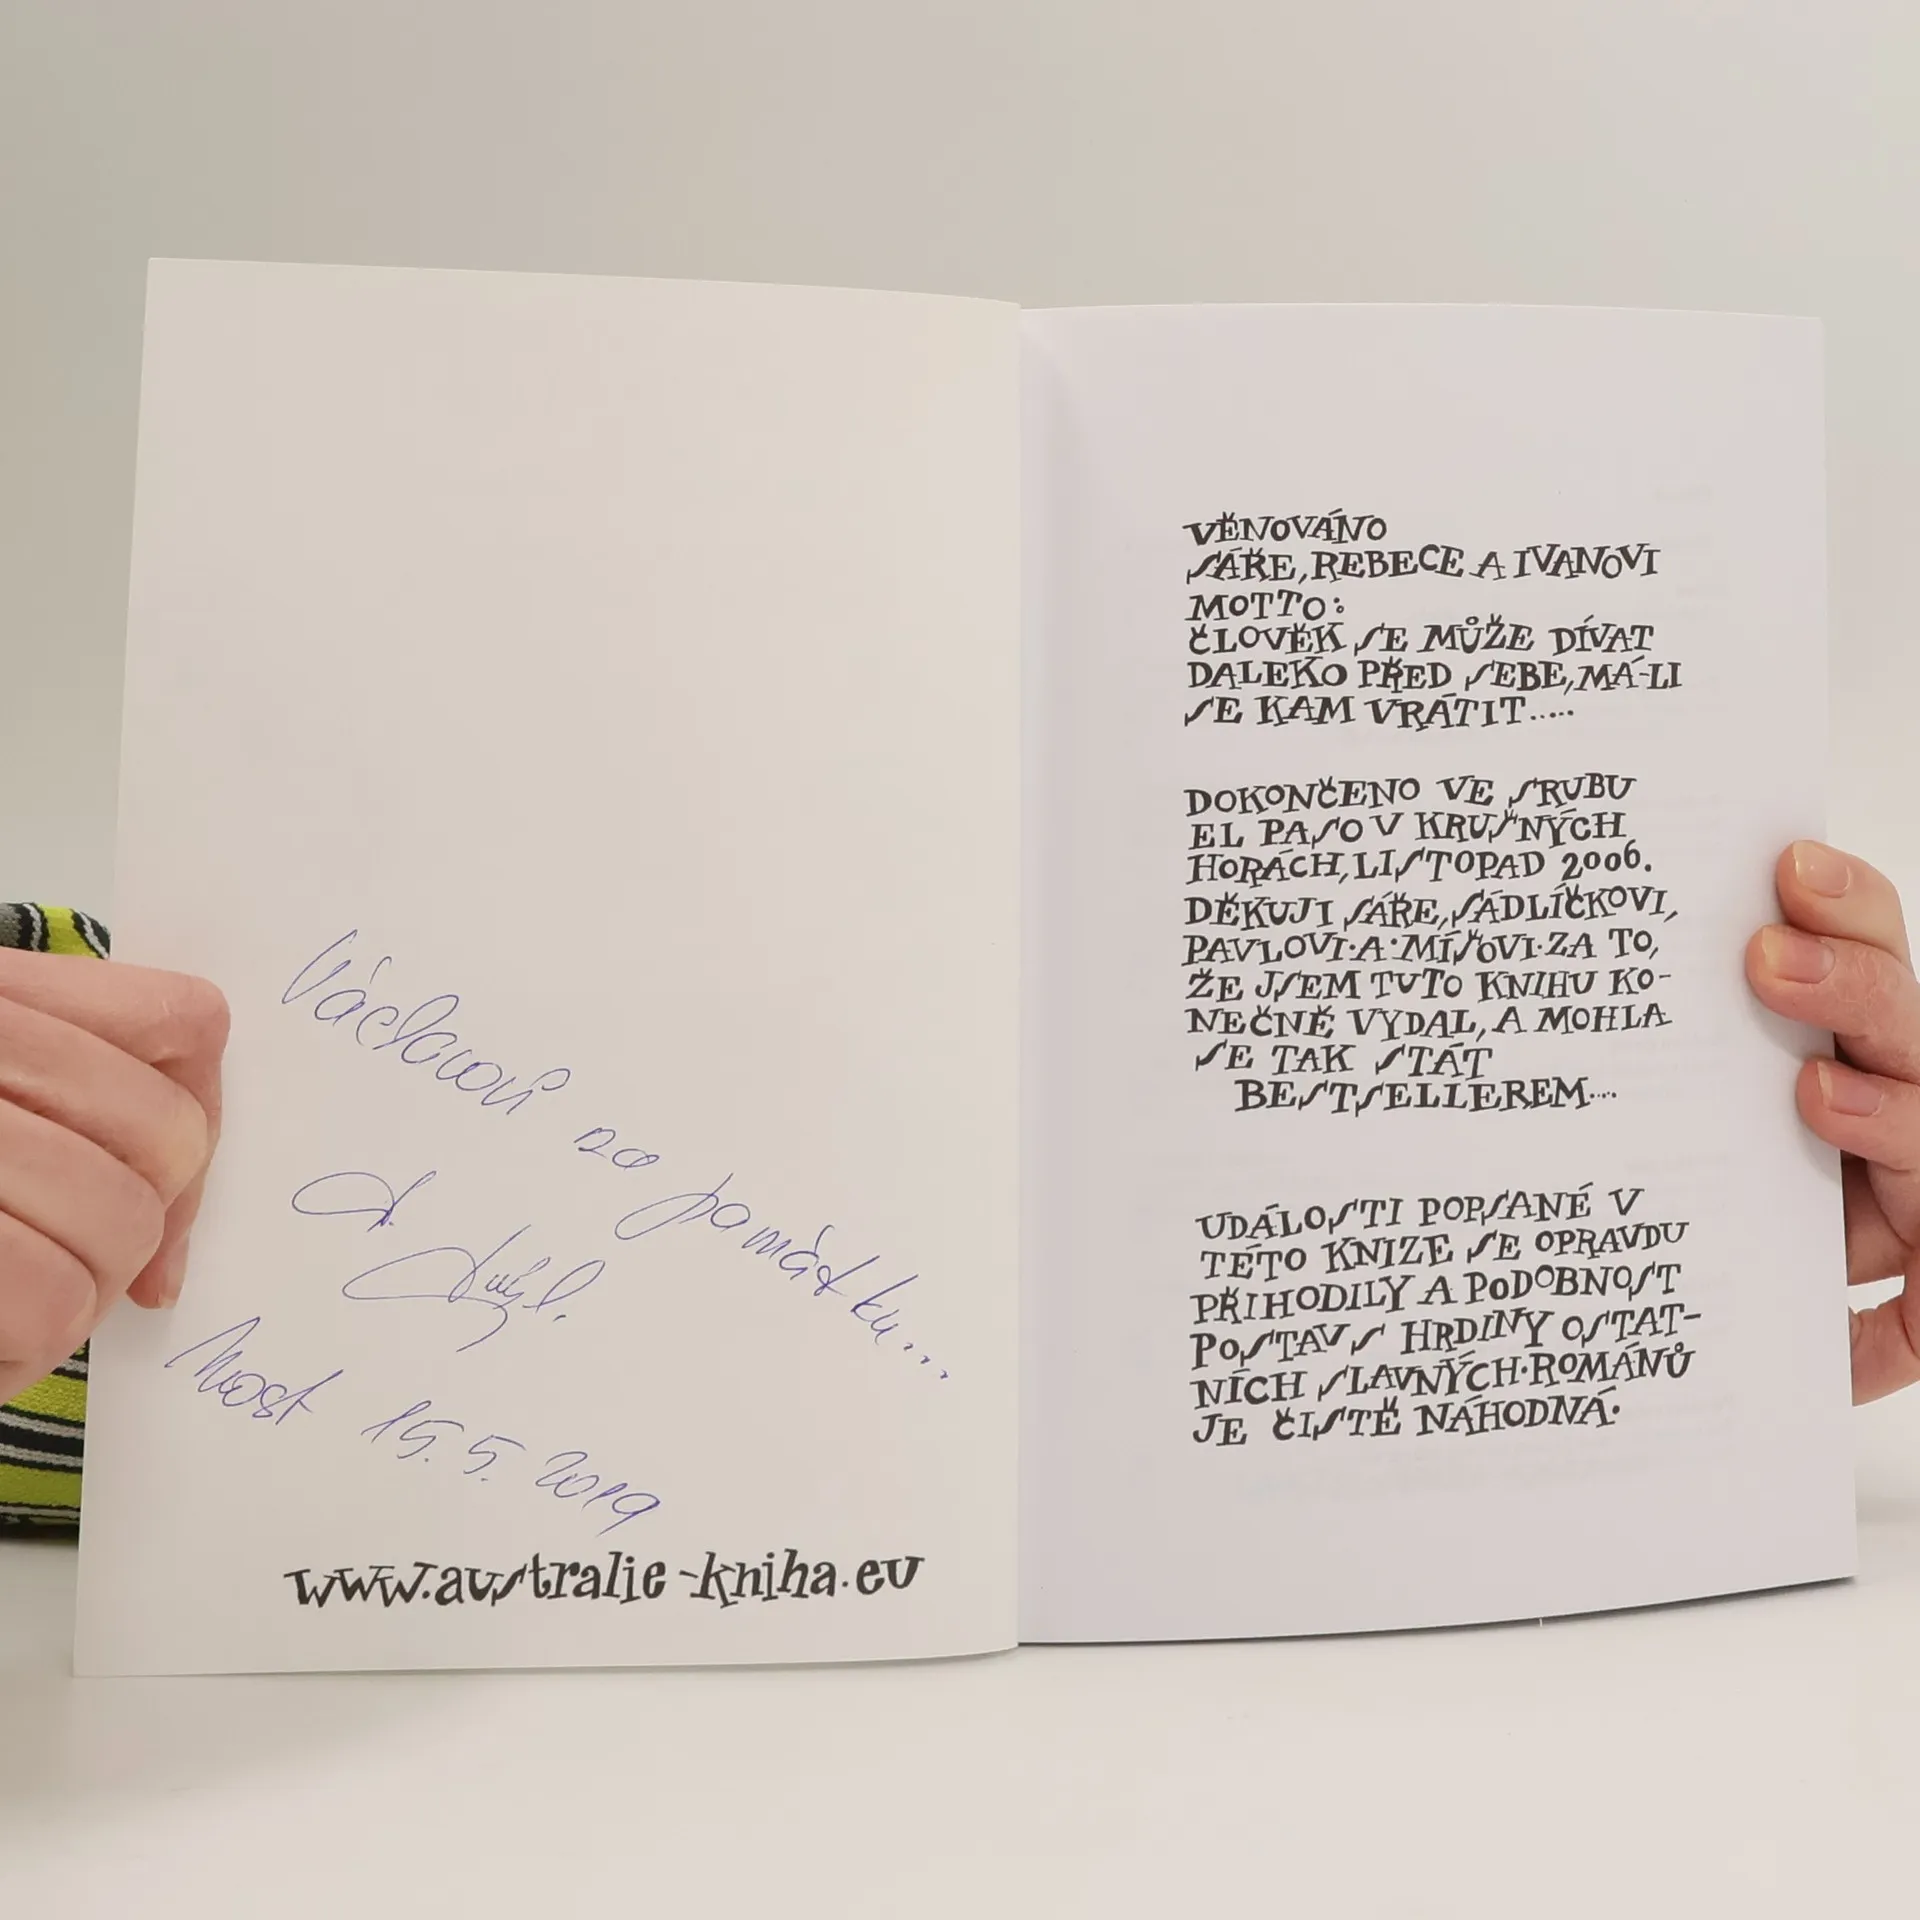 Václavovi za památku...
Most 15. 5. 2019
www.australie-kniha.eu
VĚNOVÁNO
SÁŘE, REBECE A IVANOVI
MOTTO:
ČLOVĚK SE MŮŽE DÍVAT
DALEKO PŘED SEBE, MÁ-LI
SE KAM VRÁTIT.....
DOKONČENO VE SRUBU
EL PASO V KRUŠNÝCH
HORÁCH, LISTOPAD 2006.
DĚKUJI SÁŘE, SÁDLÍČKOVI,
PAVLOVI·A·MÍŠOVI·ZA TO,
ŽE JSEM TUTO KNIHU KO-
NEČNĚ VYDAL, A MOHLA
SE TAK STÁT
BESTSELLEREM....
UDÁLOSTI POPSANÉ V
TÉTO KNIZE SE OPRAVDU
PŘIHODILY A PODOBNOST
POSTAV S HRDINY OSTAT-
NÍCH SLAVNÝCH·ROMÁNŮ
JE ČISTĚ NÁHODNÁ.